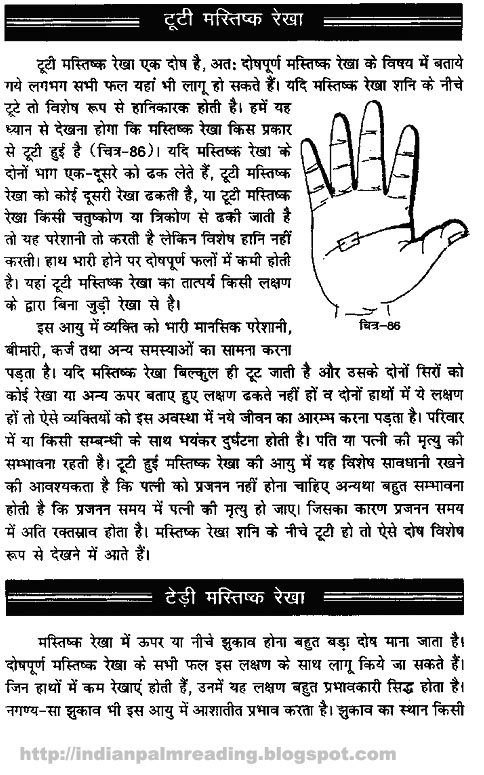 टूटी मस्तिष्क रेखा
टूटी मस्तिष्क रेखा एक दोष है, अतः दोषपूर्ण मस्तिष्क रेखा के विषय में बताये
गये लगभग सभी फल यहां भी लागू हो सकते हैं। यदि मस्तिष्क रेखा शनि के नीचे
टूटे तो विशेष रूप से हानिकारक होती है। हमें यह
ध्यान से देखना होगा कि मस्तिष्क रेखा किस प्रकार
से टूटी हुई है (चित्र-86)। यदि मस्तिष्क रेखा के
दोनों भाग एक-दूसरे को ढक लेते हैं, टूटी मस्तिष्क
रेखा को कोई दूसरी रेखा ढकती है, या टूटी मस्तिष्क
रेखा किसी चतुष्कोण या त्रिकोण से ढकी जाती है
तो यह परेशानी तो करती है लेकिन विशेष हानि नहीं
करती। हाथ भारी होने पर दोषपूर्ण फलों में कमी होती
है। यहां टूटी मस्तिष्क रेखा का तात्पर्य किसी लक्षण
के द्वारा बिना जुड़ी रेखा से है।
चित्र-86
इस आयु में व्यक्ति को भारी मानसिक परेशानी,
बीमारी, कर्ज तथा अन्य समस्याओं का सामना करना
पड़ता है। यदि मस्तिष्क रेखा बिल्कुल ही टूट जाती है और उसके दोनों सिरों को
कोई रेखा या अन्य ऊपर बताए हुए लक्षण ढकते नहीं हों व दोनों हाथों में ये लक्षण
हों तो ऐसे व्यक्तियों को इस अवस्था में नये जीवन का आरम्भ करना पड़ता है। परिवार
में या किसी सम्बन्धी के साथ भयंकर दुर्घटना होती है। पति या पत्नी की मृत्यु की
सम्भावना रहती है। टूटी हुई मस्तिष्क रेखा की आयु में यह विशेष सावधानी रखने
की आवश्यकता है कि पत्नी को प्रजनन नहीं होना चाहिए अन्यथा बहुत सम्भावना
होती है कि प्रजनन समय में पत्नी की मृत्यु हो जाए। जिसका कारण प्रजनन समय
में अति रक्तस्राव होता है। मस्तिष्क रेखा शनि के नीचे टूटी हो तो ऐसे दोष विशेष
रूप से देखने में आते हैं।
टेड़ी मस्तिष्क रेखा
मस्तिष्क रेखा में ऊपर या नीचे झुकाव होना बहुत बड़ा दोष माना जाता है।
दोषपूर्ण मस्तिष्क रेखा के सभी फल इस लक्षण के साथ लागू किये जा सकते हैं।
जिन हाथों में कम रेखाएं होती हैं, उनमें यह लक्षण बहुत प्रभावकारी सिद्ध होता है।
नगण्य-सा झुकाव भी इस आयु में आशातीत प्रभाव करता है। झुकाव का स्थान किसी
http://indianpalmreading.blogspot.com